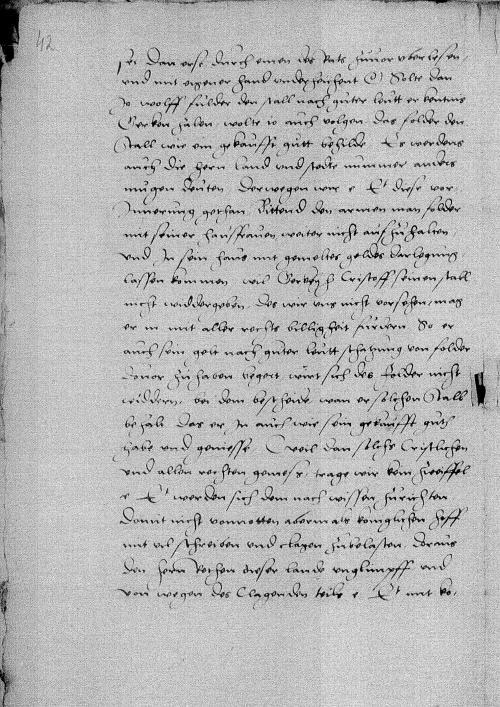 42
sei Dan erse durch einen des Rats zuuor vberlesen
vnd mit eigener hand vnderzeichent Solte dan
Jo wolff fulder den stall nach guter leutt erkentnus
haben, wolte io auch volgen das folder den
Stall wie ein gekaufft gutt behilde Es werdens
auch die hern land vnd stedte nummer anders
mugen deuten Derwegen wir e Et diese vor
Innerung gethan, Bittend den armen man folder
mit seiner hausfrauen weiter nicht aufzuhalten
vnd In sein haus mit gemeltes geldes darlegung
lassen kommen wil Cristoff seinen stall
nicht widdergeben des wir vns nicht vorsehen, mag
er in mit aller rechts billigheit furdern So er
auch sein gelt nach guter leutt schatzung von folder
douor zuhaben begert wirt sich des folder nicht
widdern, bei dem bescheide wan er solchen Stall
behalt das er In auch wie sein gekaufft guth
habe vnd geniesse, weil dan solchs Cristlichen
vnd allen rechten gemess, trage wir kein zweiffel
e Et werden sich dem nach wissen zurichten
Domit nicht vonnotten abermals koniglichen hoff
mit vil schreiben vnd clagen zubelasten, doraus
den hern Rethen dieser lande vnglimpff vnd
von wegen des Clagenden teils e Et mit ko,